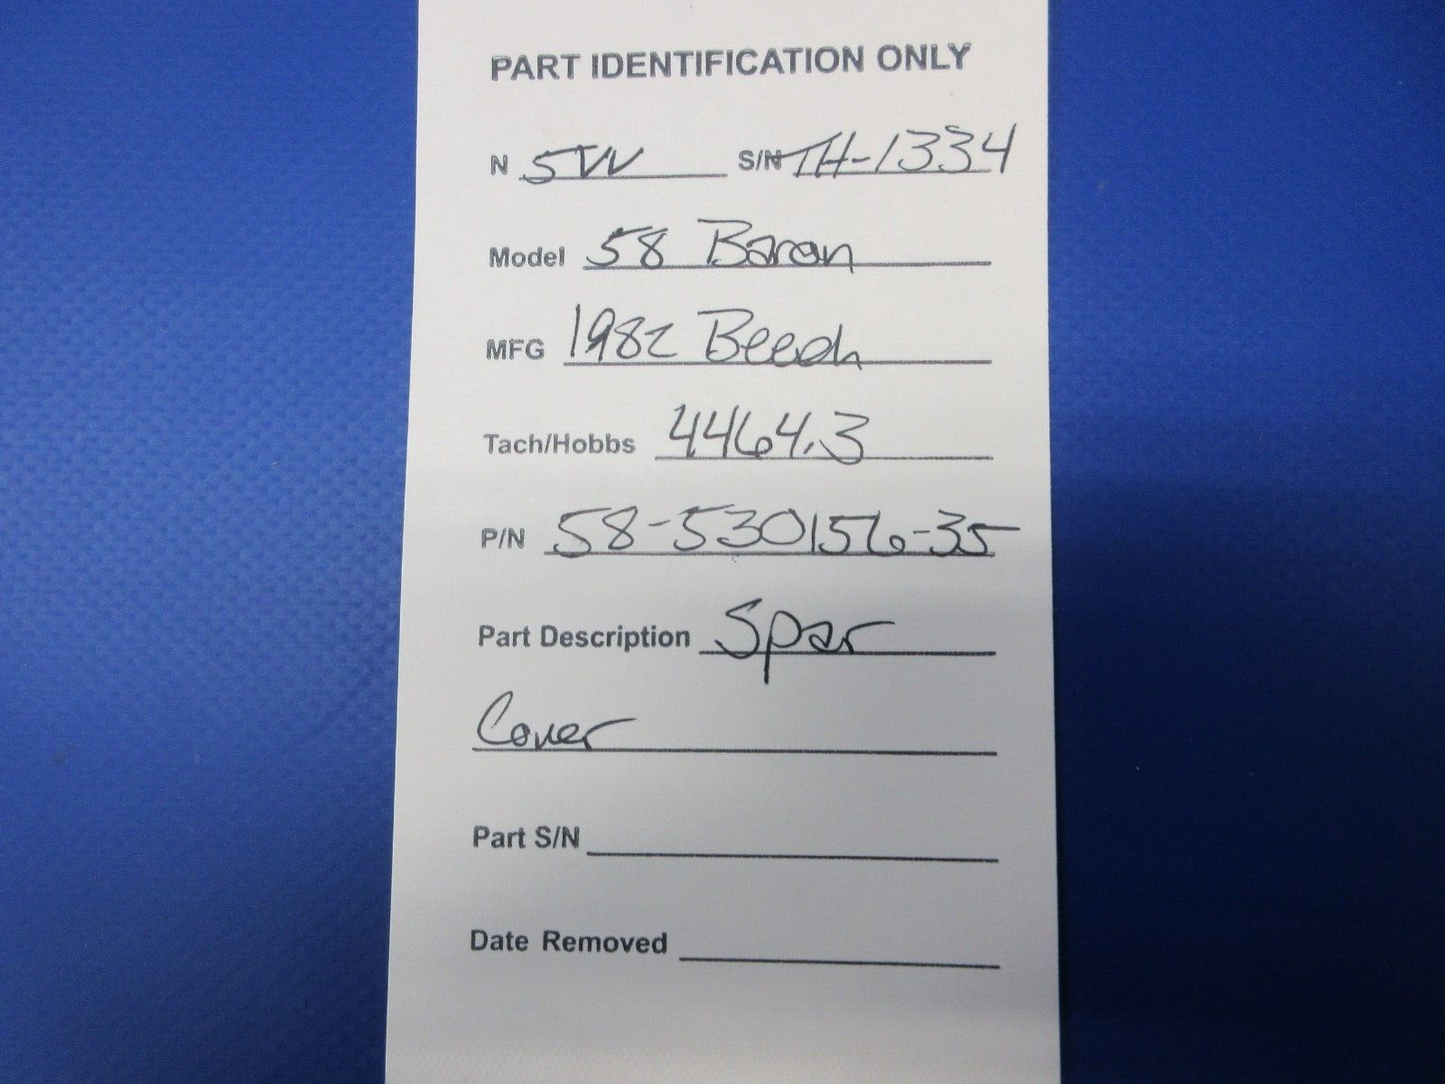 PART IDENTIFICATION ONLY
N 5VV S/N TH-1334
Model 58 Baron
MFG 1982 Beech
Tach/Hobbs 4464.3
P/N 58-530156-35
Part Description Spar
Cover
Part S/N
Date Removed